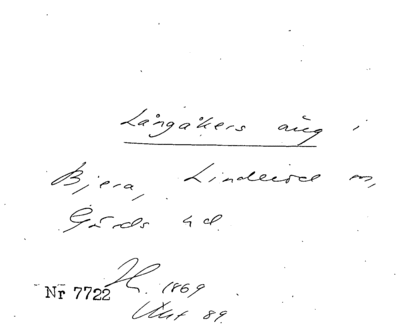 Långåkers äng i
Bjera, Linderöd sn,
Gärds hd.
Nr 7722
1869
89